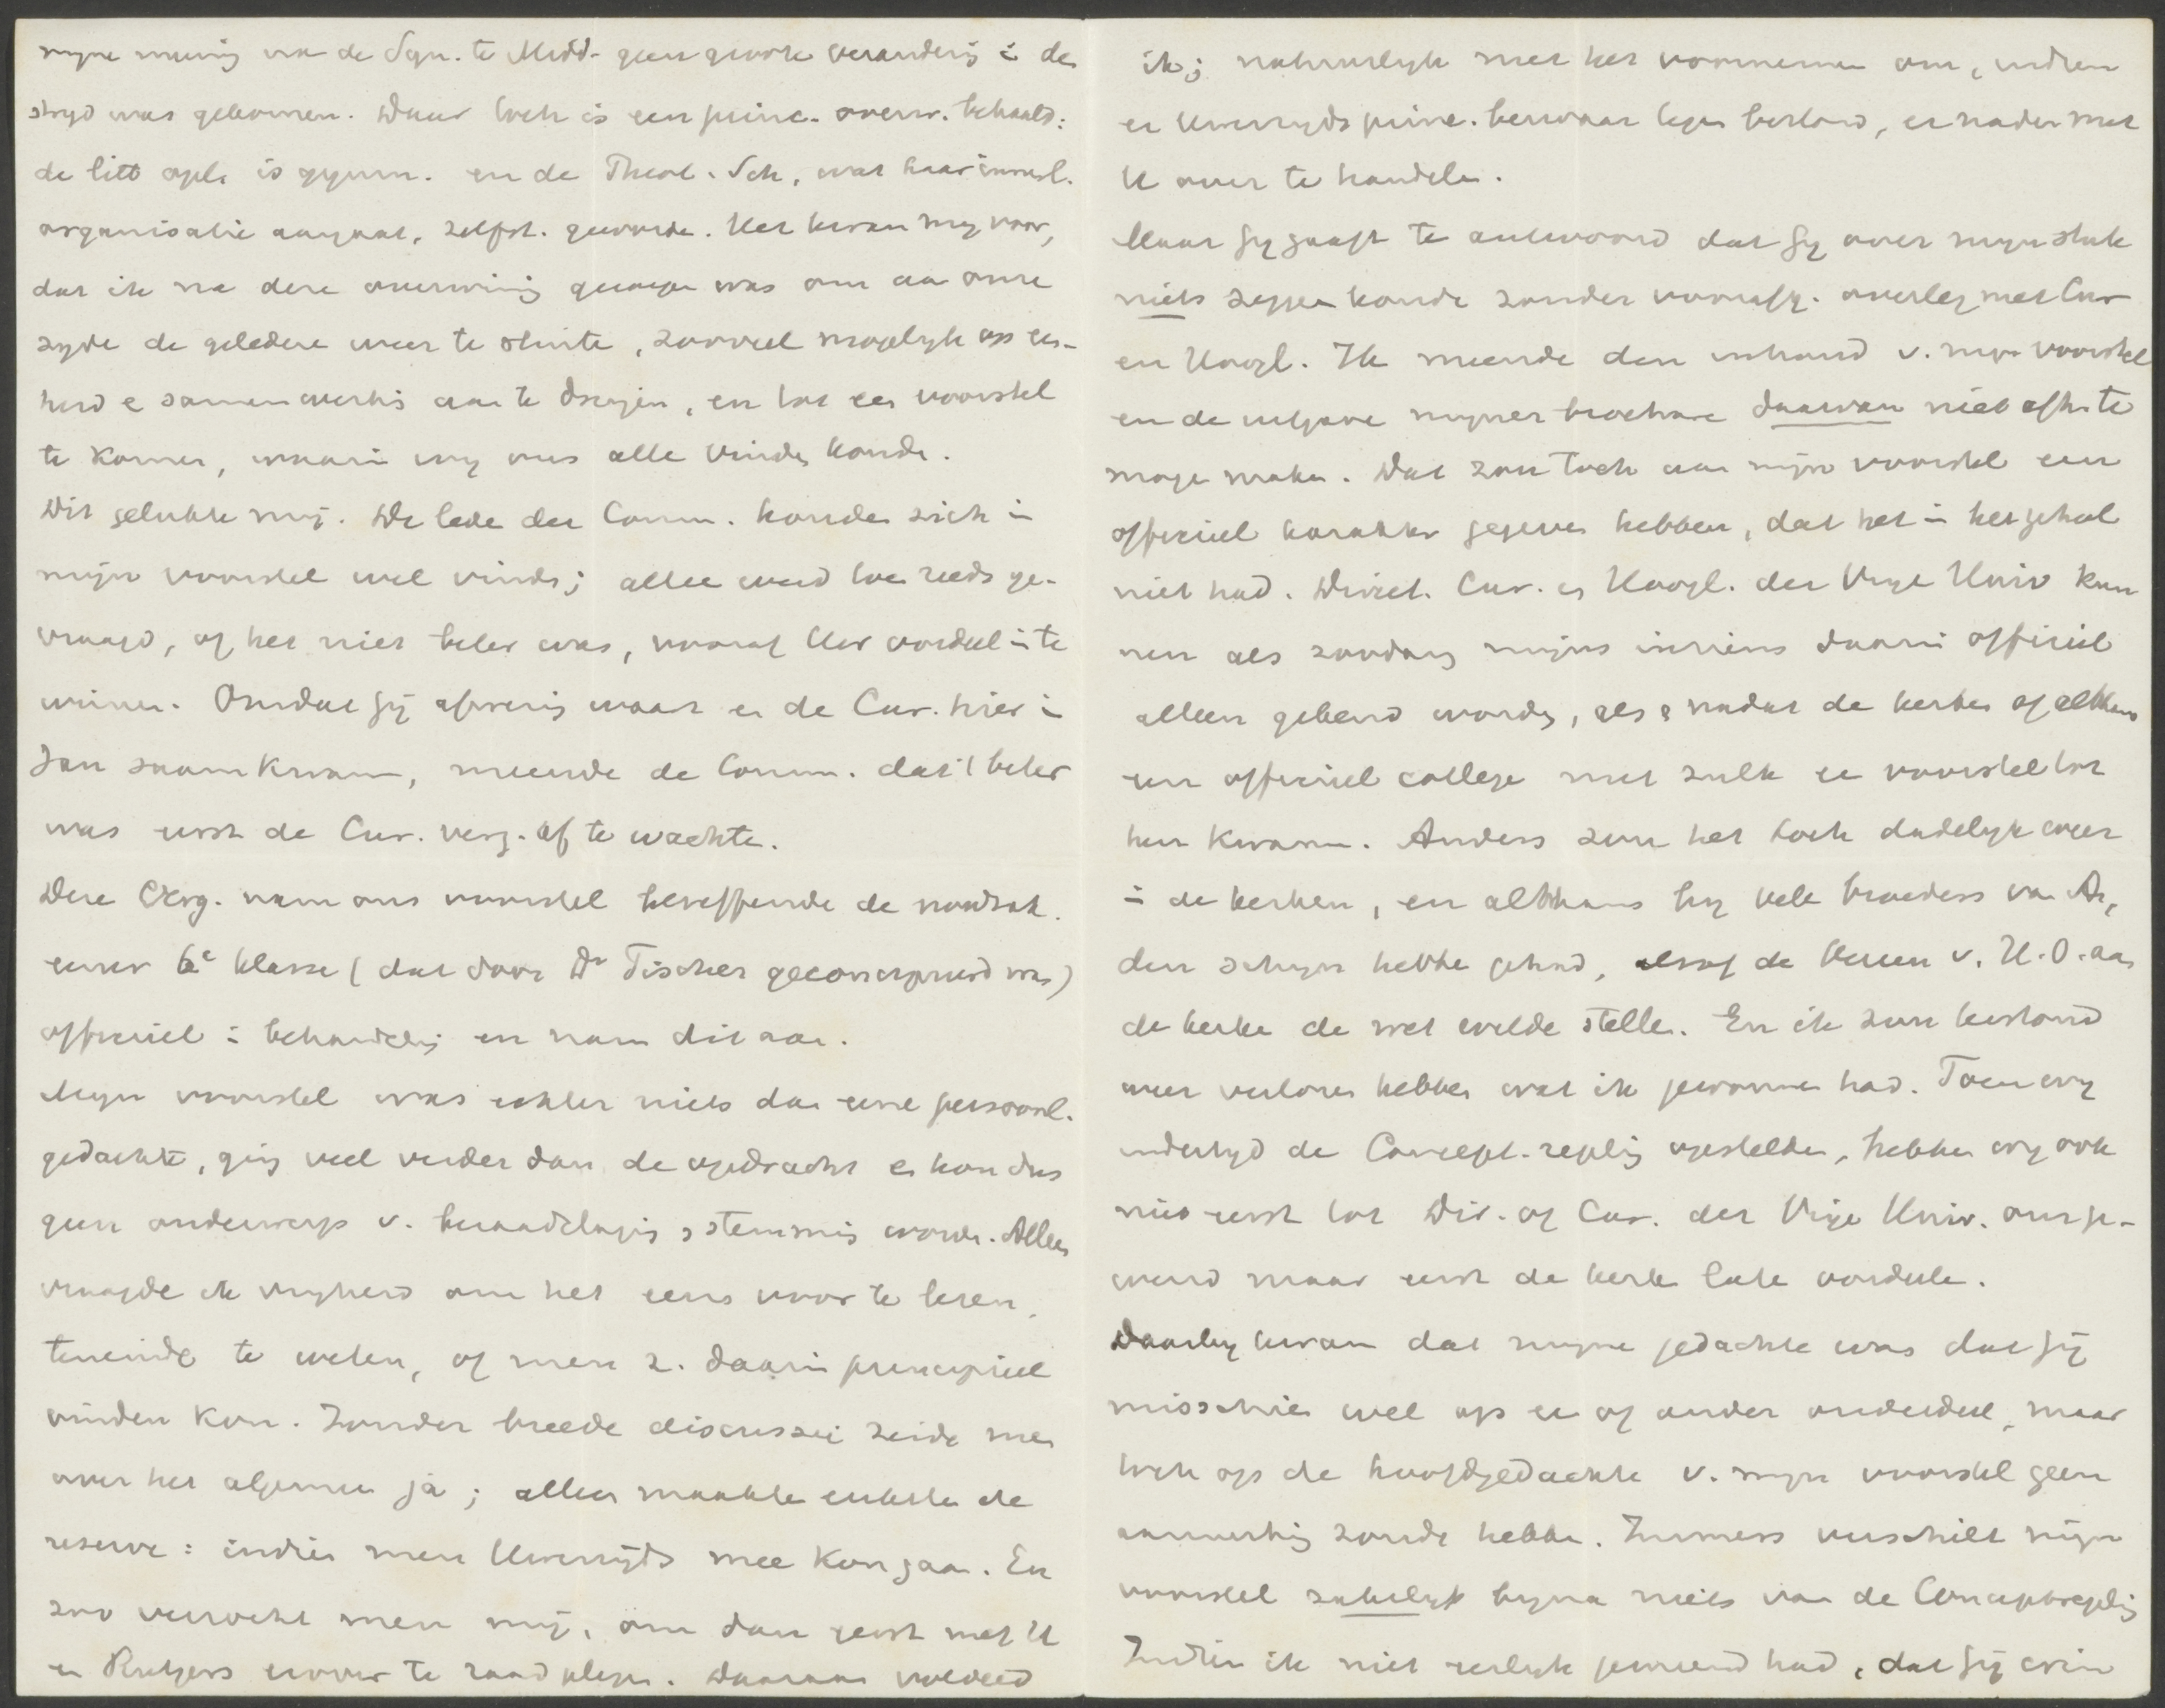 mijne mening na de Syn. te Midd. geen groote verandering in de
stryd was gekomen. Daar toch is een princ. overw. behaald:
de litt. opl. is gymn. en de Theol. Sch., wat haar inwend.
organisatie aangaat, zelfst. geworden. Het kwam mij voor,
dat ik na deze overwinning geroepen was om aan onze
zyde de gelederen weer te sluiten, zooveel mogelyk op een-
heid en samenwerking aan te dringen, en tot een voorstel
te komen, waarin wy ons alle vinden konden.
Dit gelukte mij. De leden der Comm. konden zich in
mijn voorstel wel vinden; alleen werd toen reeds ge-
vraagd, of het niet beter was, vooraf Uw oordeel in te
winnen. Omdat gij afwezig waart en de Cur. hier in
Jan saamkwam, meende de Comm. dat 't beter
was eerst de Cur. verg. af te wachten.
Deze Verg. nam ons voorstel betreffende de noodzak.
eener 6e klasse (dat door Dr Tischer geconcipieerd was)
officieel in behandeling en nam dit aan.
Mijn voorstel was echter niets dan eene persoonl.
gedachte, ging veel verder dan de opdracht en kon dus
geen onderwerp v. beraadslaging en stemming worden. Alleen
vraagde ik vryheid om het eens voor te lezen,
teneinde te weten, of men z. daarin principieel
vinden kon. Zonder breede discussie zeide men
over het algemeen ja; alleen maakten enkelen de
reserve: indien men Uwerzijds mee kon gaan. En
zoo verzocht men mij, om dan eerst met U
en Rutgers erover te raadplegen. Daaraan voldeed
ik; natuurlyk met het voornemen om, indien
er Uwerzyds princ. bezwaar tegen bestond, er nader met
U over te handelen.
Maar Gy gaaft te antwoord dat Gy over mijn stuk
niets zeggen konde zonder voorafg. overleg met Cur
en Hoogl. Ik meende den inhoud v. mijn voorstel
en de uitgave mijner brochure daarvan niet afh. te
mogen maken. Dat zou toch aan mijn voorstel een
officieel karakter gegeven hebben, dat het in het geheel
niet had. Direct. Cur. en Hoogl. der Vrye Univ kun
nen als zoodanig mijns inziens daarin officieel
alleen gekend worden, als en nadat de kerken of althans
een officieel college met zulk een voorstel tot
hen kwam. Anders zou het toch dadelyk weer
in de kerken, en althans by vele broeders van A,
den schyn hebben gehad, alsof de Vereen v. H.O. aan
de kerken de wet wilde stellen. En ik zou terstond
weer verloren hebben wat ik gewonnen had. Toen wy
indertyd de Concept-regeling opstelden, hebben wy ook
niet eerst tot Dir. of Cur. der Vrije Univ. ons ge-
wend maar eerst de kerken laten oordeelen.
Daarby kwam dat mijne gedachte was dat gij
misschien wel op een of ander onderdeel, maar
toch op de hoofdgedachte v. mijn voorstel geen
aanmerking zoudt hebben. Immers verschilt mijn
voorstel zakelyk byna niets van de Conceptregeling
Indien ik niet eerlyk gemeend had, dat gij erin